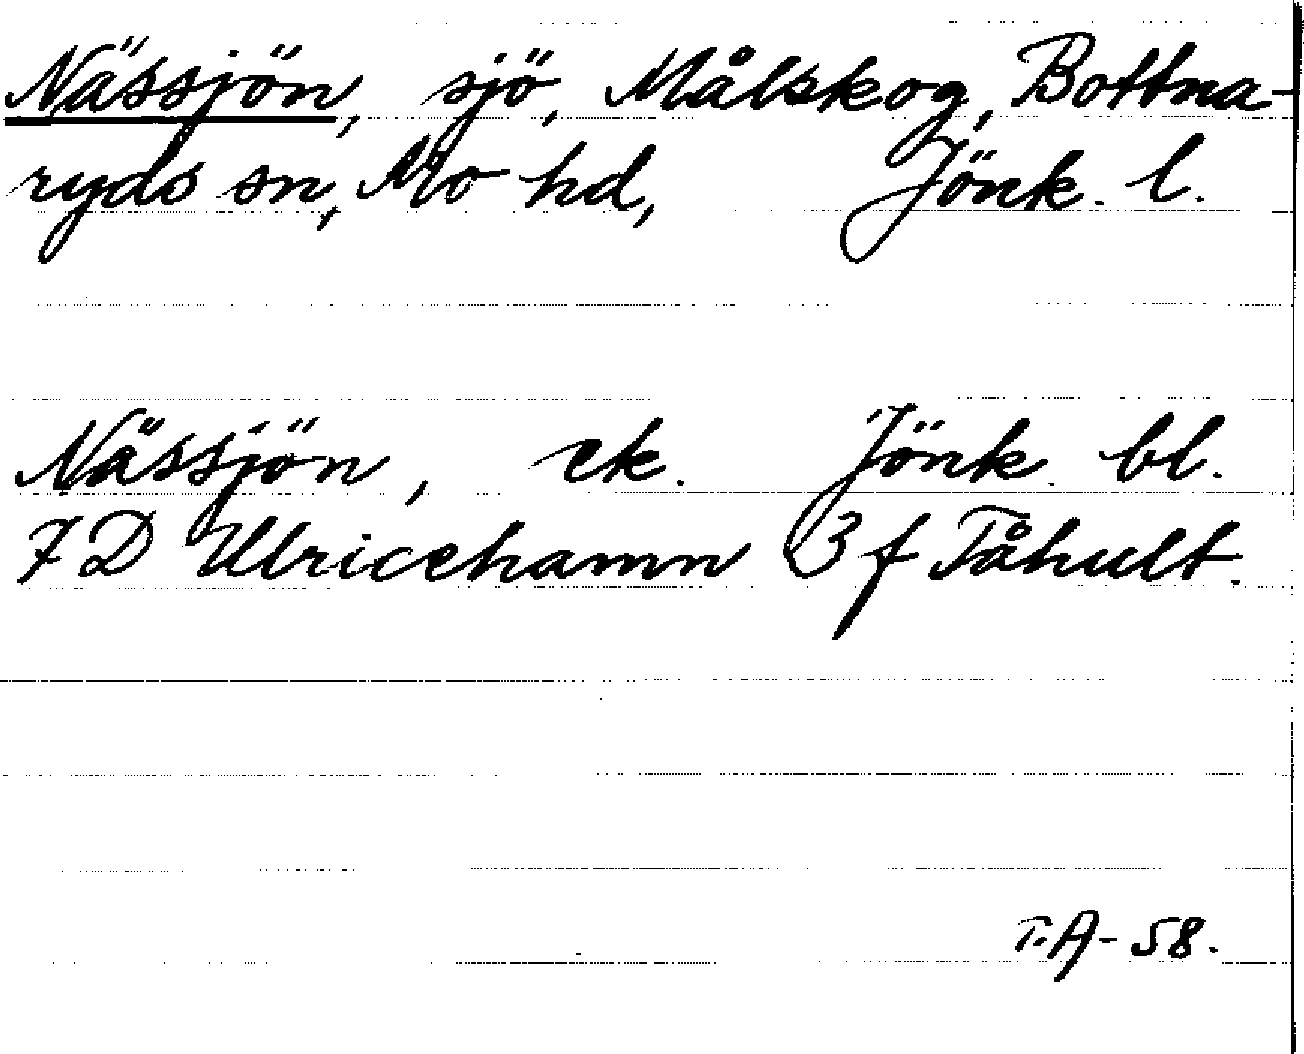 Nässjön, sjö, Målskog, Bottna-
ryds sn, Mo hd, Jönk. l.
Nässjön, ek. Jönk. bl.
7D Ulricehamn 3 f Tåhult.
T.A-58.